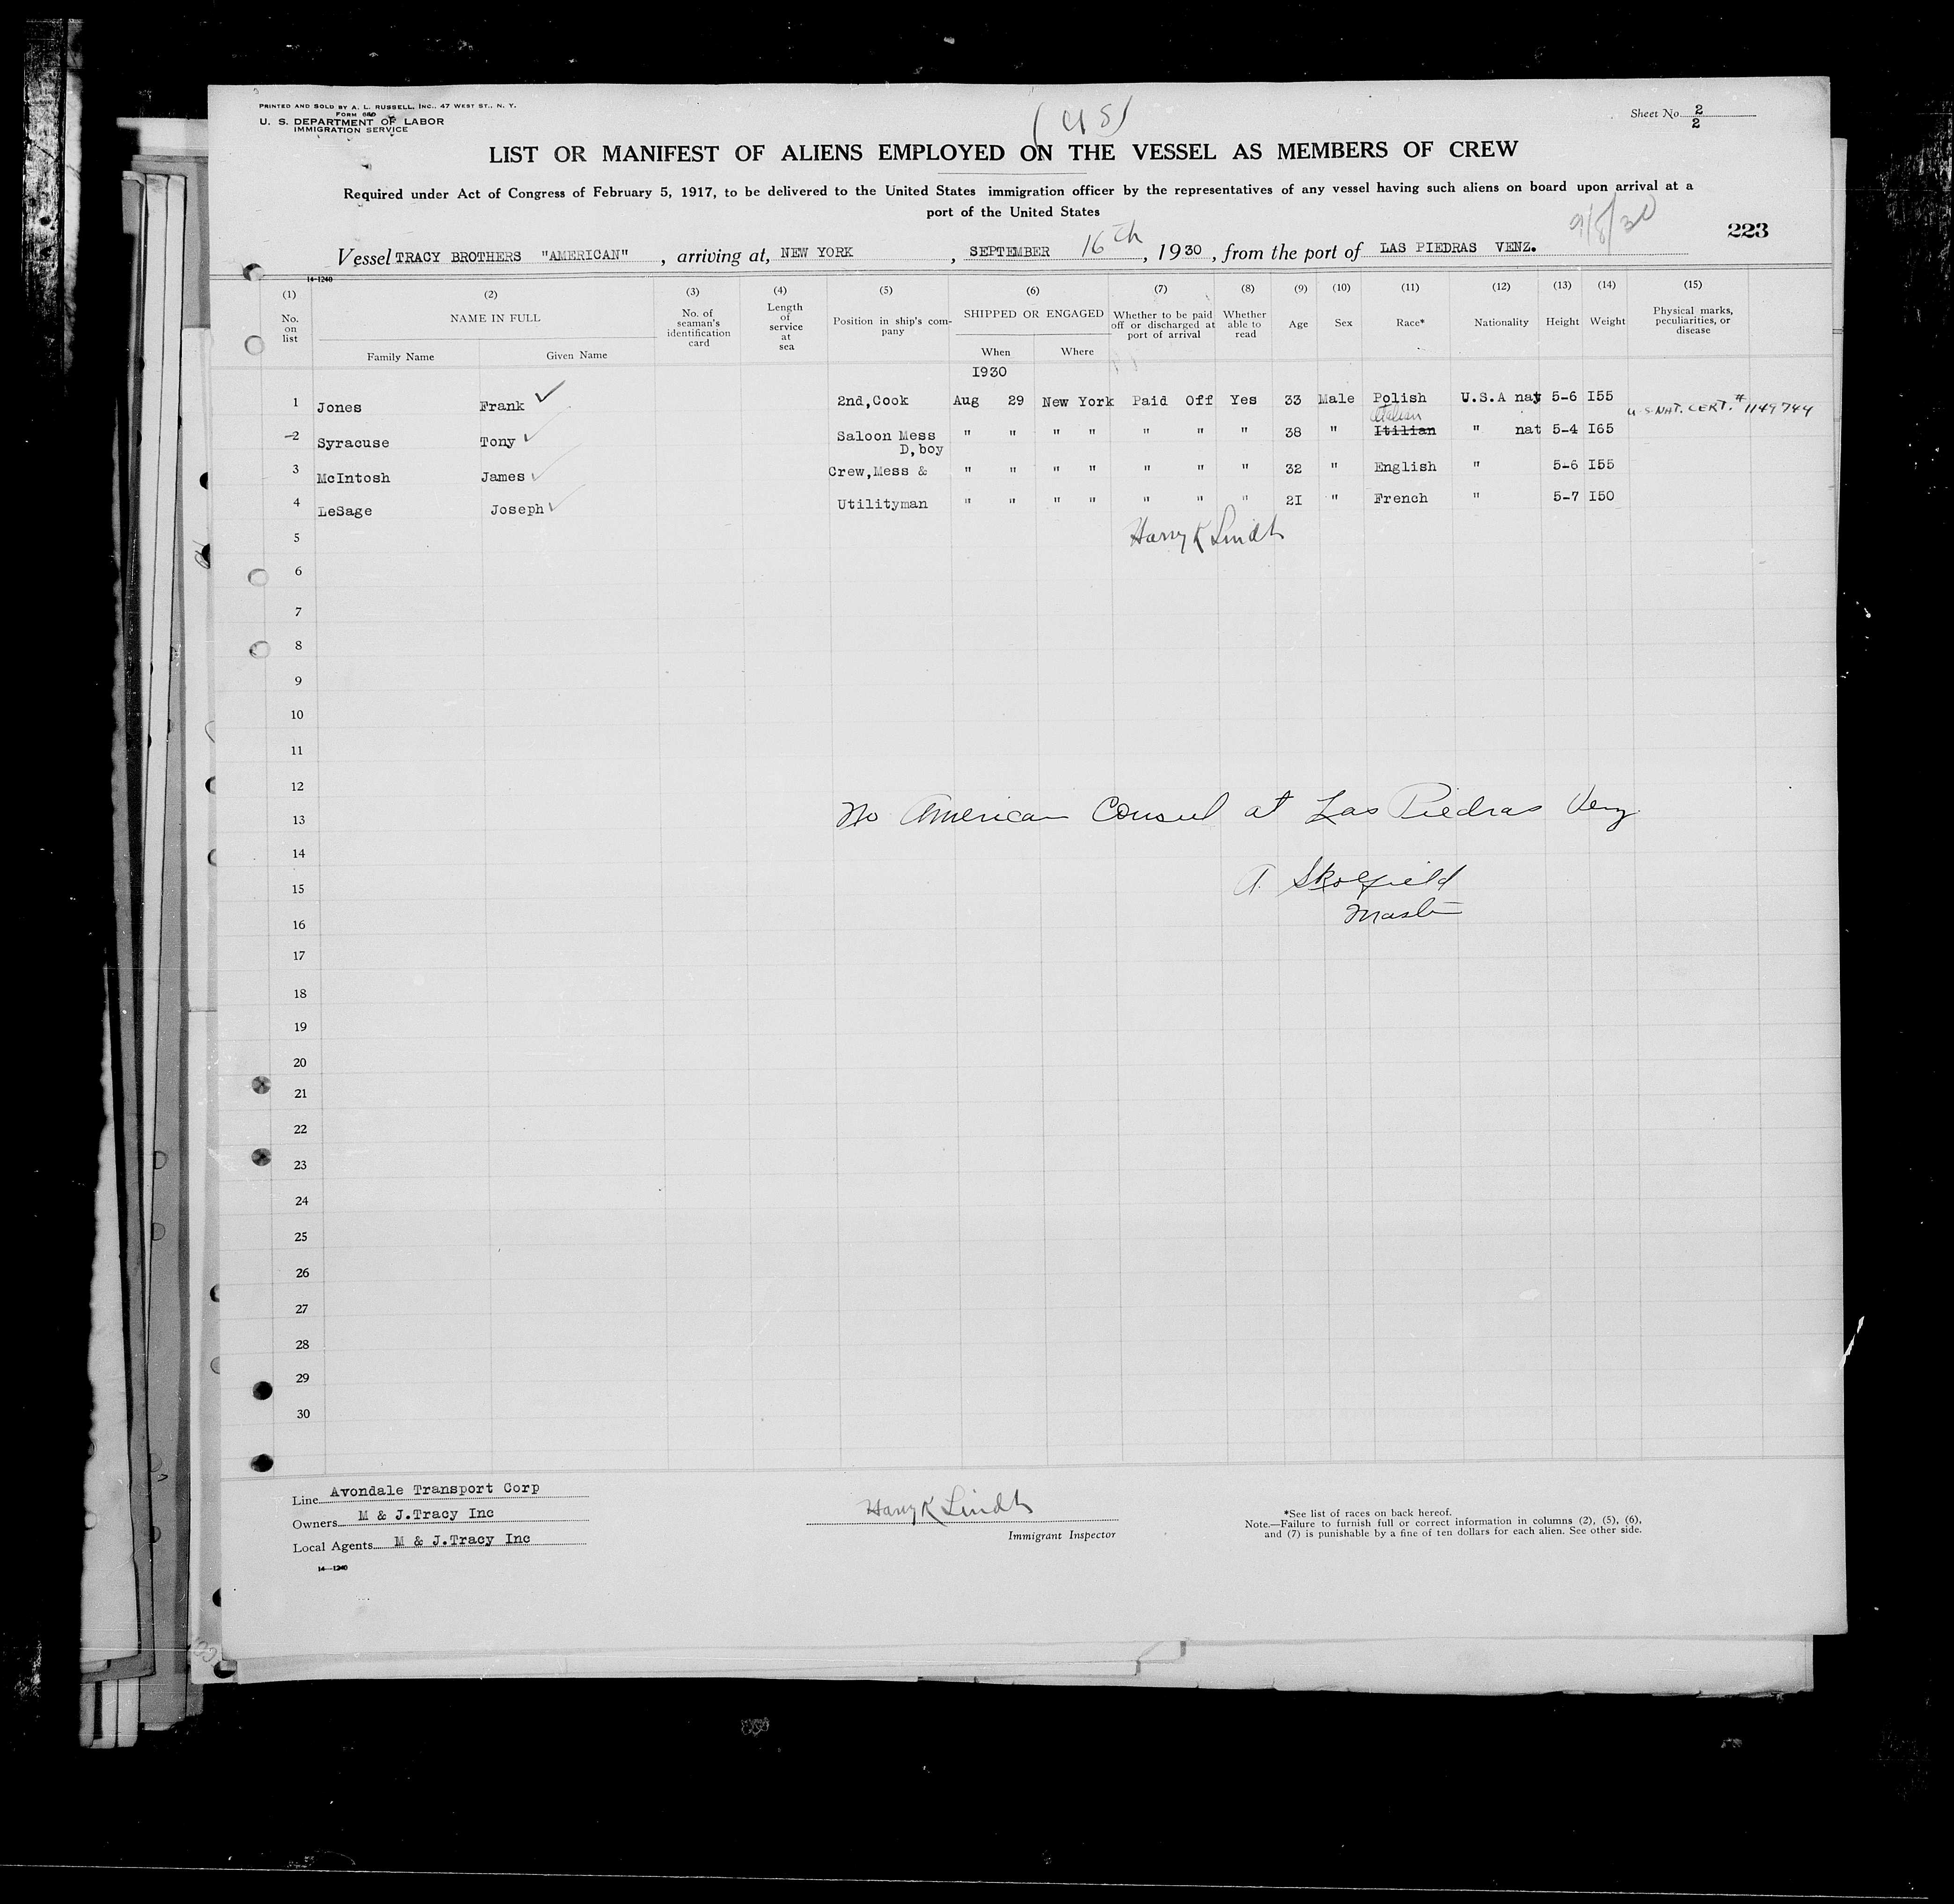 PRINTED AND SOLD BY A. L. RUSSELL, INC., 47 WEST ST., N. Y.
FORM 680
U. S. DEPARTMENT OF LABOR
IMMIGRATION SERVICE
(US)
Sheet No. 2
2
LIST OR MANIFEST OF ALIENS EMPLOYED ON THE VESSEL AS MEMBERS OF CREW
Required under Act of Congress of February 5, 1917, to be delivered to the United States immigration officer by the representatives of any vessel having such aliens on board upon arrival at a
port of the United States
9/8/30
223
Vessel TRACY BROTHERS "AMERICAN" , arriving at, NEW YORK , SEPTEMBER 16th , 1930 , from the port of LAS PIEDRAS VENZ.
14-1240
(1) (2) (3) (4) (5) (6) (7) (8) (9) (10) (11) (12) (13) (14) (15)
No. on list NAME IN FULL Family Name Given Name No. of seaman's identification card Length of service at sea Position in ship's company SHIPPED OR ENGAGED When Where Whether to be paid off or discharged at port of arrival Whether able to read Age Sex Race* Nationality Height Weight Physical marks, peculiarities, or disease
1930
1 Jones Frank ✓ 2nd,Cook Aug 29 New York Paid Off Yes 33 Male Polish U.S.A nat 5-6 I55 U.S. NAT. CERT. # 1149744
Italian
-2 Syracuse Tony ✓ Saloon Mess " " " " " " " 38 " Itilian " nat 5-4 I65
D,boy
3 McIntosh James ✓ Crew,Mess & " " " " " " " 32 " English " 5-6 I55
4 LeSage Joseph ✓ Utilityman " " " " " " " 2I " French " 5-7 I50
5 Harry K Lindt
6
7
8
9
10
11
12
13 No American Consul at Las Piedras Venz
14
15 A. Skolfield
16 Master
17
18
19
20
21
22
23
24
25
26
27
28
29
30
Line Avondale Transport Corp
Owners M & J.Tracy Inc
Local Agents M & J.Tracy Inc
14-1240
Harry K Lindt
Immigrant Inspector
*See list of races on back hereof.
Note.—Failure to furnish full or correct information in columns (2), (5), (6),
and (7) is punishable by a fine of ten dollars for each alien. See other side.